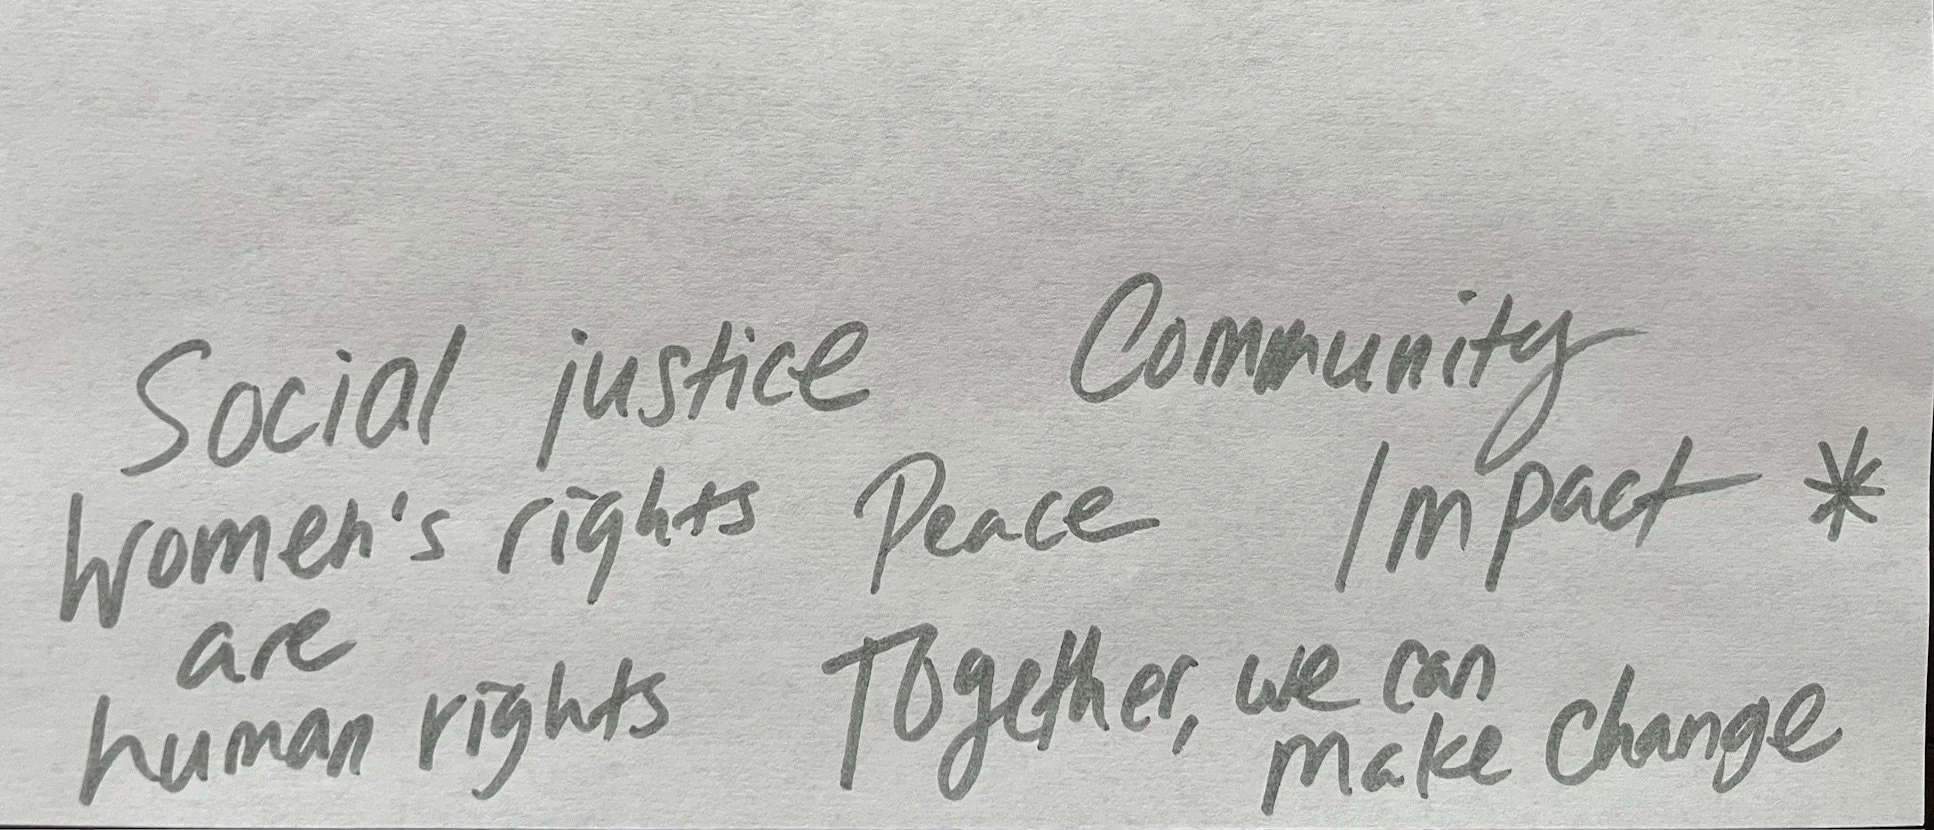 Social justice Community
Women's rights Peace Impact *
are
human rights Together, we can
make change